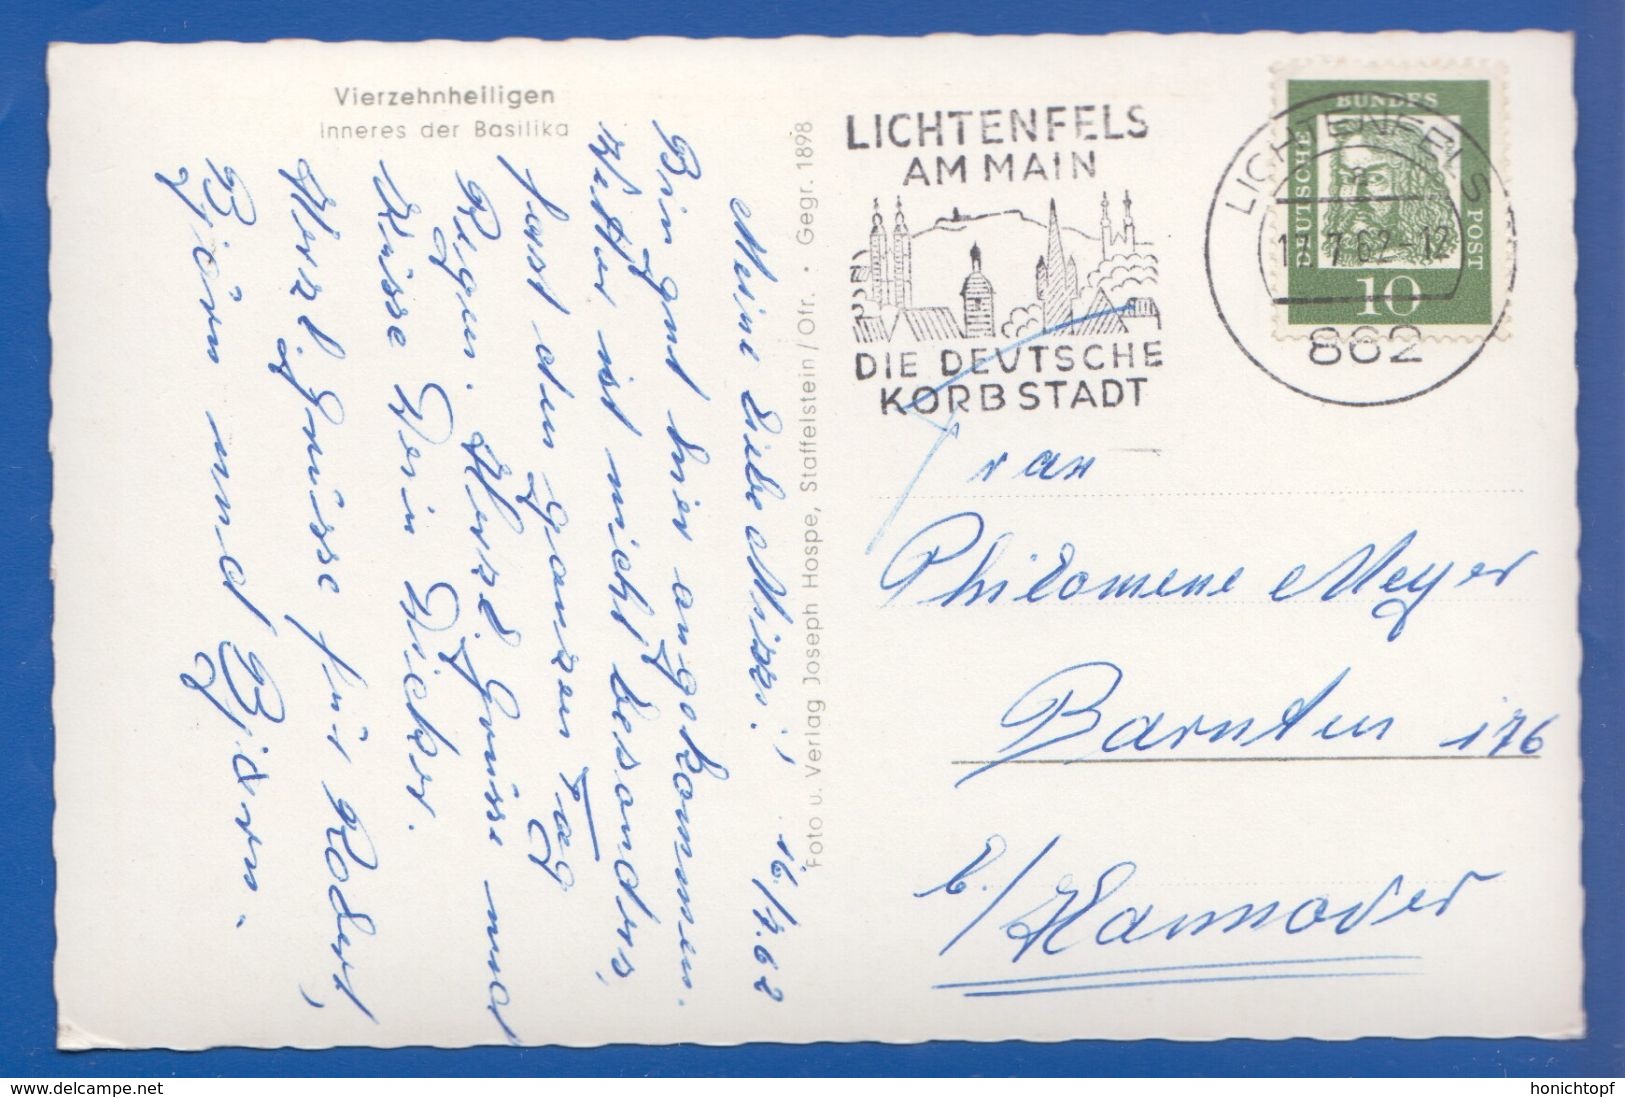 Vierzehnheiligen
Inneres der Basilika
Meine liebe Mizzi! 16./7.62
Bin gut hier angekommen.
Wetter ist nicht besonders,
fast den ganzen Tag
Regen. Herzl. Grüsse und
Küsse Dein Dicker.
Herzl. Grüsse für Robert,
Björn und Bjärn.
Foto u. Verlag Joseph Hospe, Staffelstein/Ofr. · Gegr. 1898
LICHTENFELS
AM MAIN
DIE DEUTSCHE
KORBSTADT
LICHTENFELS
17.7.62-12
862
DEUTSCHE
BUNDES
POST
10
Frau
Philomene Meyer
Barnten 176
b./Hannover
www.delcampe.net
honichtopf